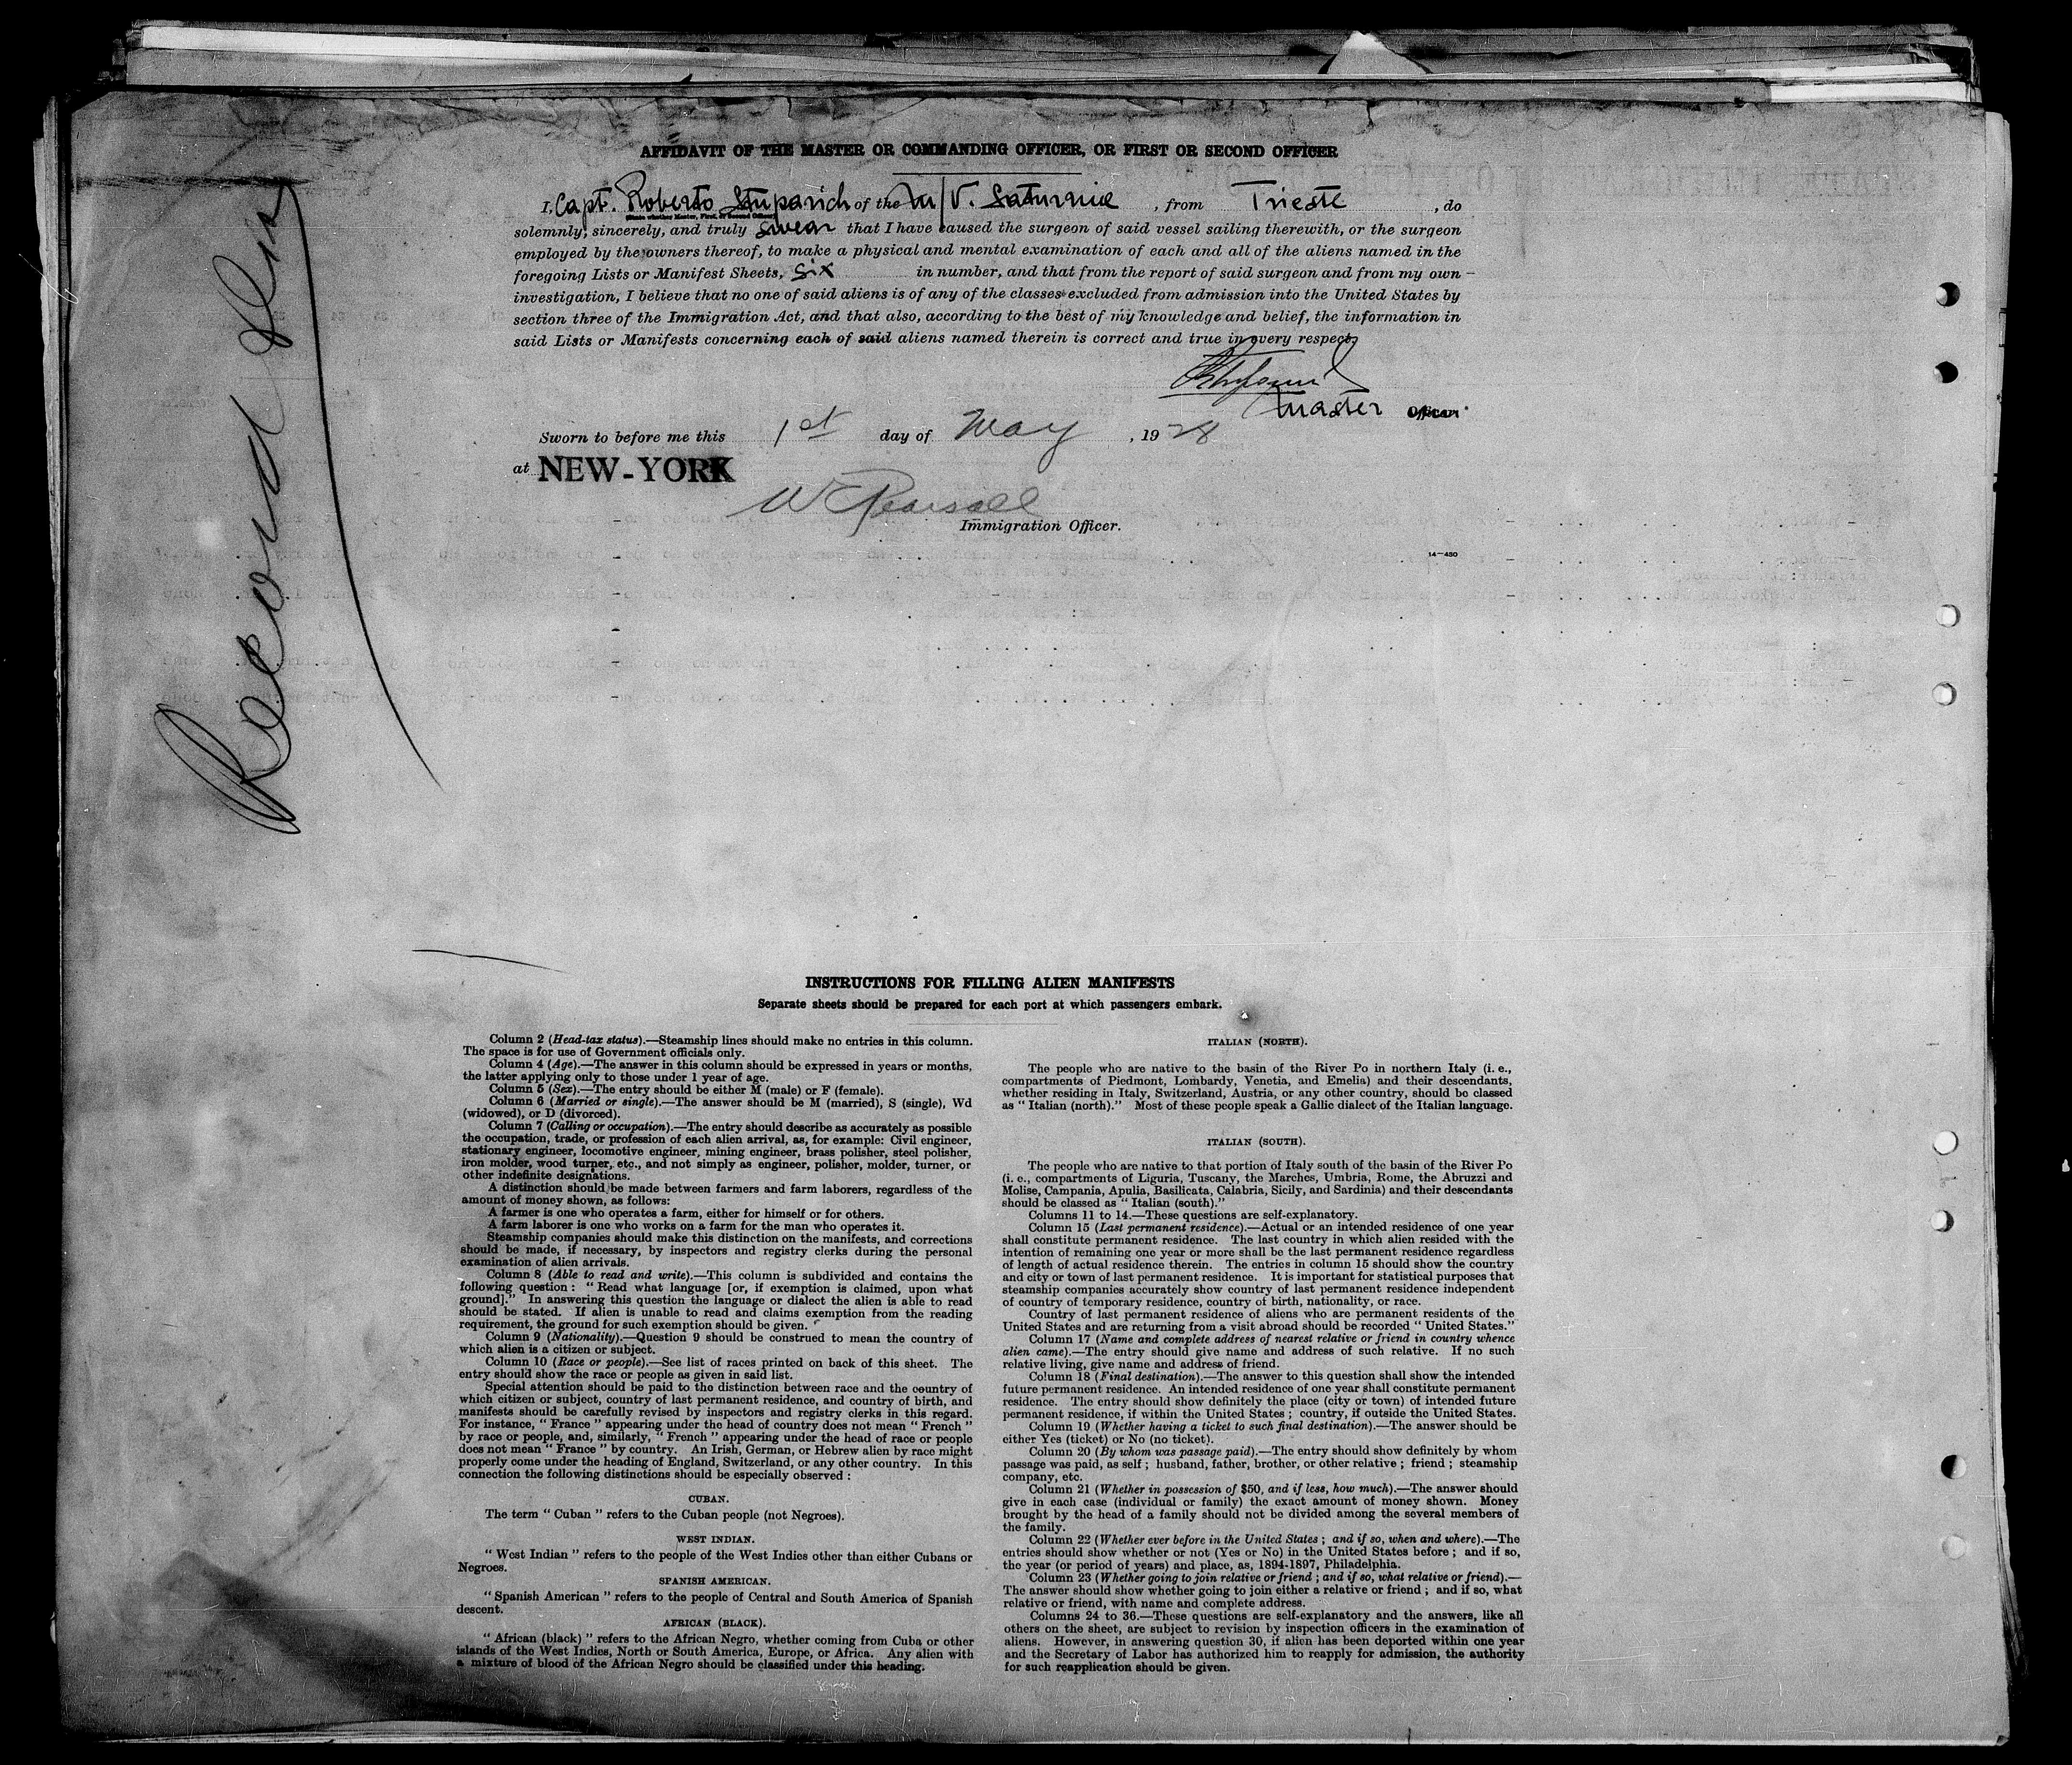 AFFIDAVIT OF THE MASTER OR COMMANDING OFFICER, OR FIRST OR SECOND OFFICER
I, Capt. Roberto Stuparich of the M/V. Saturnia, from Trieste, do
(State whether Master, First, or Second Officer)
solemnly, sincerely, and truly swear that I have caused the surgeon of said vessel sailing therewith, or the surgeon
employed by the owners thereof, to make a physical and mental examination of each and all of the aliens named in the
foregoing Lists or Manifest Sheets, six in number, and that from the report of said surgeon and from my own
investigation, I believe that no one of said aliens is of any of the classes excluded from admission into the United States by
section three of the Immigration Act, and that also, according to the best of my knowledge and belief, the information in
said Lists or Manifests concerning each of said aliens named therein is correct and true in every respect.
Master Officer.
Sworn to before me this 1st day of May, 1928
at NEW-YORK
W Pearsall
Immigration Officer.
14-450
Record
INSTRUCTIONS FOR FILLING ALIEN MANIFESTS
Separate sheets should be prepared for each port at which passengers embark.
Column 2 (Head-tax status).—Steamship lines should make no entries in this column.
The space is for use of Government officials only.
Column 4 (Age).—The answer in this column should be expressed in years or months,
the latter applying only to those under 1 year of age.
Column 5 (Sex).—The entry should be either M (male) or F (female).
Column 6 (Married or single).—The answer should be M (married), S (single), Wd
(widowed), or D (divorced).
Column 7 (Calling or occupation).—The entry should describe as accurately as possible
the occupation, trade, or profession of each alien arrival, as, for example: Civil engineer,
stationary engineer, locomotive engineer, mining engineer, brass polisher, steel polisher,
iron molder, wood turner, etc., and not simply as engineer, polisher, molder, turner, or
other indefinite designations.
A distinction should be made between farmers and farm laborers, regardless of the
amount of money shown, as follows:
A farmer is one who operates a farm, either for himself or for others.
A farm laborer is one who works on a farm for the man who operates it.
Steamship companies should make this distinction on the manifests, and corrections
should be made, if necessary, by inspectors and registry clerks during the personal
examination of alien arrivals.
Column 8 (Able to read and write).—This column is subdivided and contains the
following question: "Read what language [or, if exemption is claimed, upon what
ground]." In answering this question the language or dialect the alien is able to read
should be stated. If alien is unable to read and claims exemption from the reading
requirement, the ground for such exemption should be given.
Column 9 (Nationality).—Question 9 should be construed to mean the country of
which alien is a citizen or subject.
Column 10 (Race or people).—See list of races printed on back of this sheet. The
entry should show the race or people as given in said list.
Special attention should be paid to the distinction between race and the country of
which citizen or subject, country of last permanent residence, and country of birth, and
manifests should be carefully revised by inspectors and registry clerks in this regard.
For instance, "France" appearing under the head of country does not mean "French"
by race or people, and, similarly, "French" appearing under the head of race or people
does not mean "France" by country. An Irish, German, or Hebrew alien by race might
properly come under the heading of England, Switzerland, or any other country. In this
connection the following distinctions should be especially observed:
CUBAN.
The term "Cuban" refers to the Cuban people (not Negroes).
WEST INDIAN.
"West Indian" refers to the people of the West Indies other than either Cubans or
Negroes.
SPANISH AMERICAN.
"Spanish American" refers to the people of Central and South America of Spanish
descent.
AFRICAN (BLACK).
"African (black)" refers to the African Negro, whether coming from Cuba or other
islands of the West Indies, North or South America, Europe, or Africa. Any alien with
a mixture of blood of the African Negro should be classified under this heading.
ITALIAN (NORTH).
The people who are native to the basin of the River Po in northern Italy (i. e.,
compartments of Piedmont, Lombardy, Venetia, and Emelia) and their descendants,
whether residing in Italy, Switzerland, Austria, or any other country, should be classed
as "Italian (north)." Most of these people speak a Gallic dialect of the Italian language.
ITALIAN (SOUTH).
The people who are native to that portion of Italy south of the basin of the River Po
(i. e., compartments of Liguria, Tuscany, the Marches, Umbria, Rome, the Abruzzi and
Molise, Campania, Apulia, Basilicata, Calabria, Sicily, and Sardinia) and their descendants
should be classed as "Italian (south)."
Columns 11 to 14.—These questions are self-explanatory.
Column 15 (Last permanent residence).—Actual or an intended residence of one year
shall constitute permanent residence. The last country in which alien resided with the
intention of remaining one year or more shall be the last permanent residence regardless
of length of actual residence therein. The entries in column 15 should show the country
and city or town of last permanent residence. It is important for statistical purposes that
steamship companies accurately show country of last permanent residence independent
of country of temporary residence, country of birth, nationality, or race.
Country of last permanent residence of aliens who are permanent residents of the
United States and are returning from a visit abroad should be recorded "United States."
Column 17 (Name and complete address of nearest relative or friend in country whence
alien came).—The entry should give name and address of such relative. If no such
relative living, give name and address of friend.
Column 18 (Final destination).—The answer to this question shall show the intended
future permanent residence. An intended residence of one year shall constitute permanent
residence. The entry should show definitely the place (city or town) of intended future
permanent residence, if within the United States; country, if outside the United States.
Column 19 (Whether having a ticket to such final destination).—The answer should be
either Yes (ticket) or No (no ticket).
Column 20 (By whom was passage paid).—The entry should show definitely by whom
passage was paid, as self; husband, father, brother, or other relative; friend; steamship
company, etc.
Column 21 (Whether in possession of $50, and if less, how much).—The answer should
give in each case (individual or family) the exact amount of money shown. Money
brought by the head of a family should not be divided among the several members of
the family.
Column 22 (Whether ever before in the United States; and if so, when and where).—The
entries should show whether or not (Yes or No) in the United States before; and if so,
the year (or period of years) and place, as, 1894-1897, Philadelphia.
Column 23 (Whether going to join relative or friend; and if so, what relative or friend).—
The answer should show whether going to join either a relative or friend; and if so, what
relative or friend, with name and complete address.
Columns 24 to 36.—These questions are self-explanatory and the answers, like all
others on the sheet, are subject to revision by inspection officers in the examination of
aliens. However, in answering question 30, if alien has been deported within one year
and the Secretary of Labor has authorized him to reapply for admission, the authority
for such reapplication should be given.